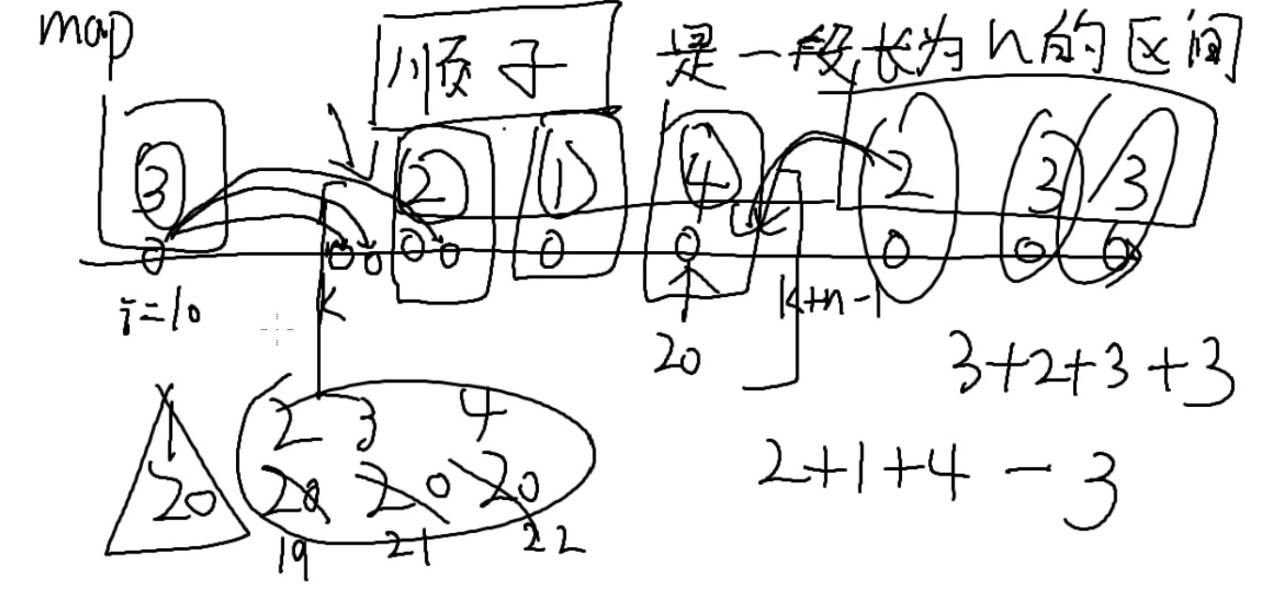 map
顺子 是一段长为n的区间
3 2 1 4 2 3 3
0 0 0 0 0 0 0 0 0 0
i=10 k k+n-1
20
3+2+3+3
2 3 4
2+1+4-3
1
20 20 20 20
19 21 22